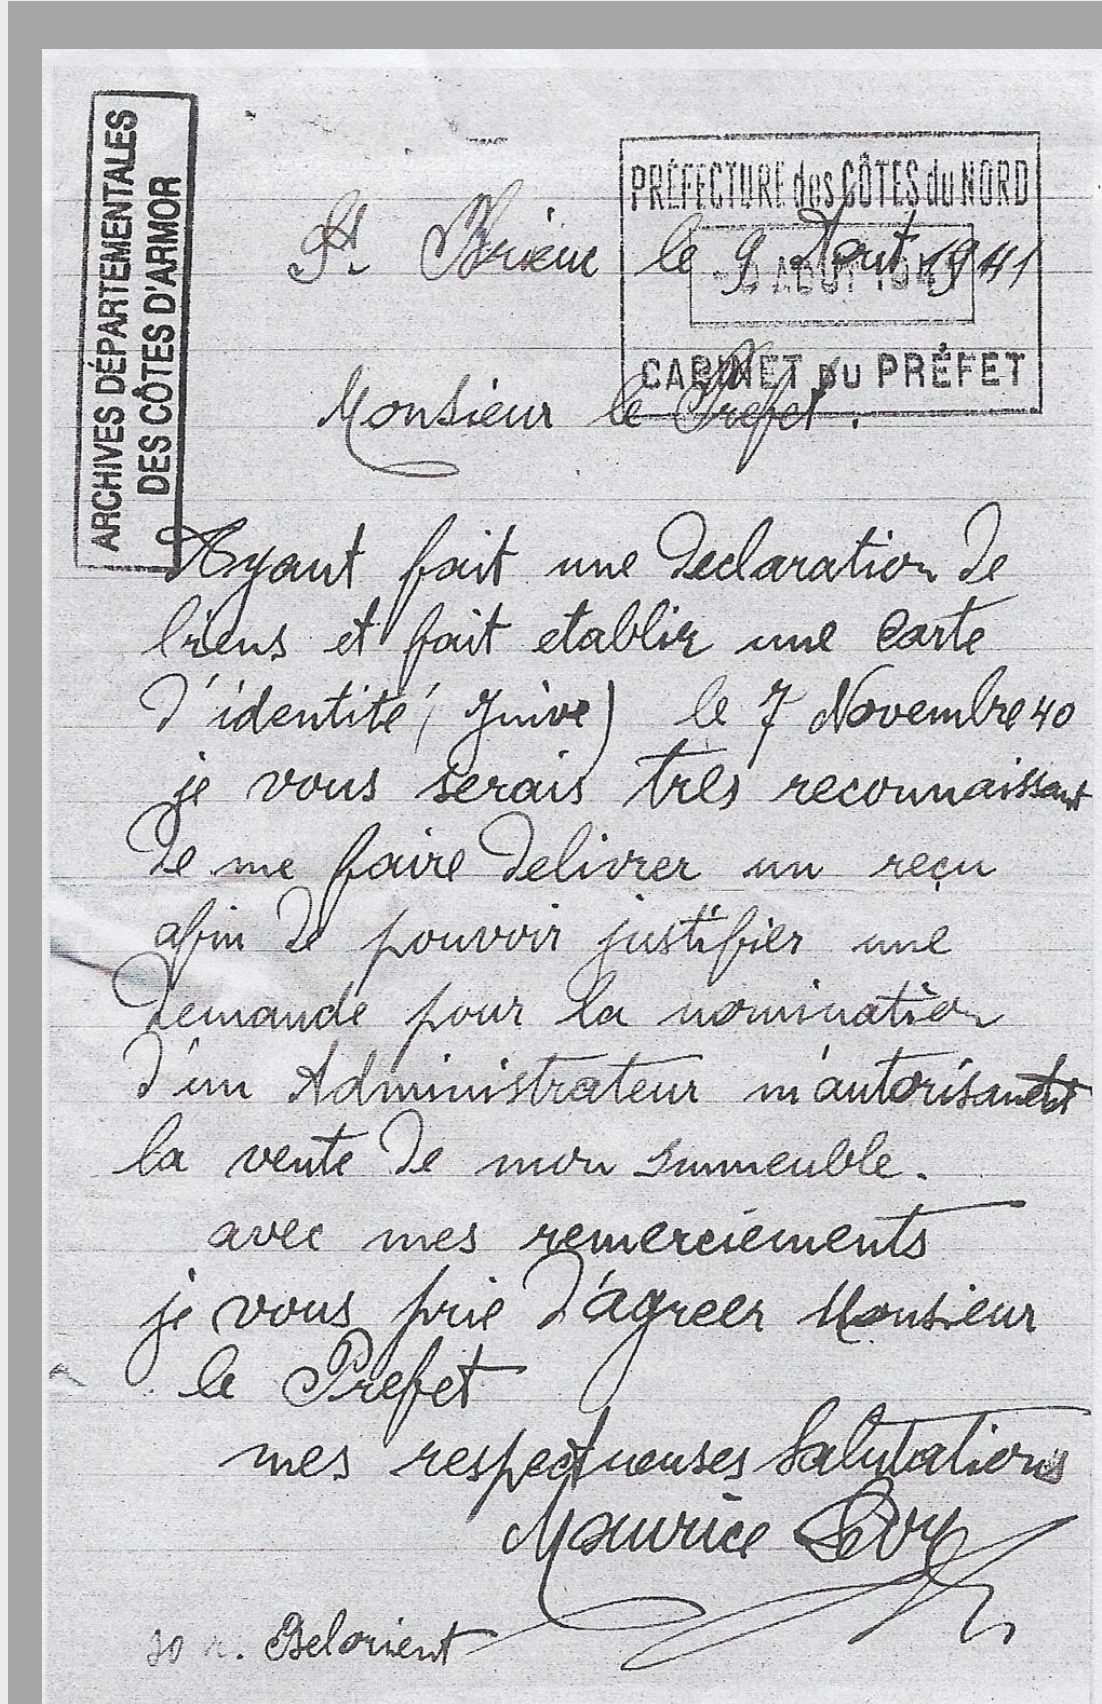 ARCHIVES DÉPARTEMENTALES
DES CÔTES D'ARMOR
PRÉFECTURE des CÔTES du NORD
AOUT
CABINET DU PRÉFET
St. Brieuc le 9 Aout 1941
Monsieur le Prefet.
Ayant fait une declaration de
biens et fait etablir une Carte
d'identité (Juive) le 7 Novembre 40
je vous serais très reconnaissant
de me faire delivrer un reçu
afin de pouvoir justifier une
demande pour la nomination
d'un Administrateur m'autorisant
la vente de mon immeuble.
avec mes remerciements
je vous prie d'agreer Monsieur
le Prefet
mes respectueuses Salutations
Maurice Lévy
30 r. Belorient